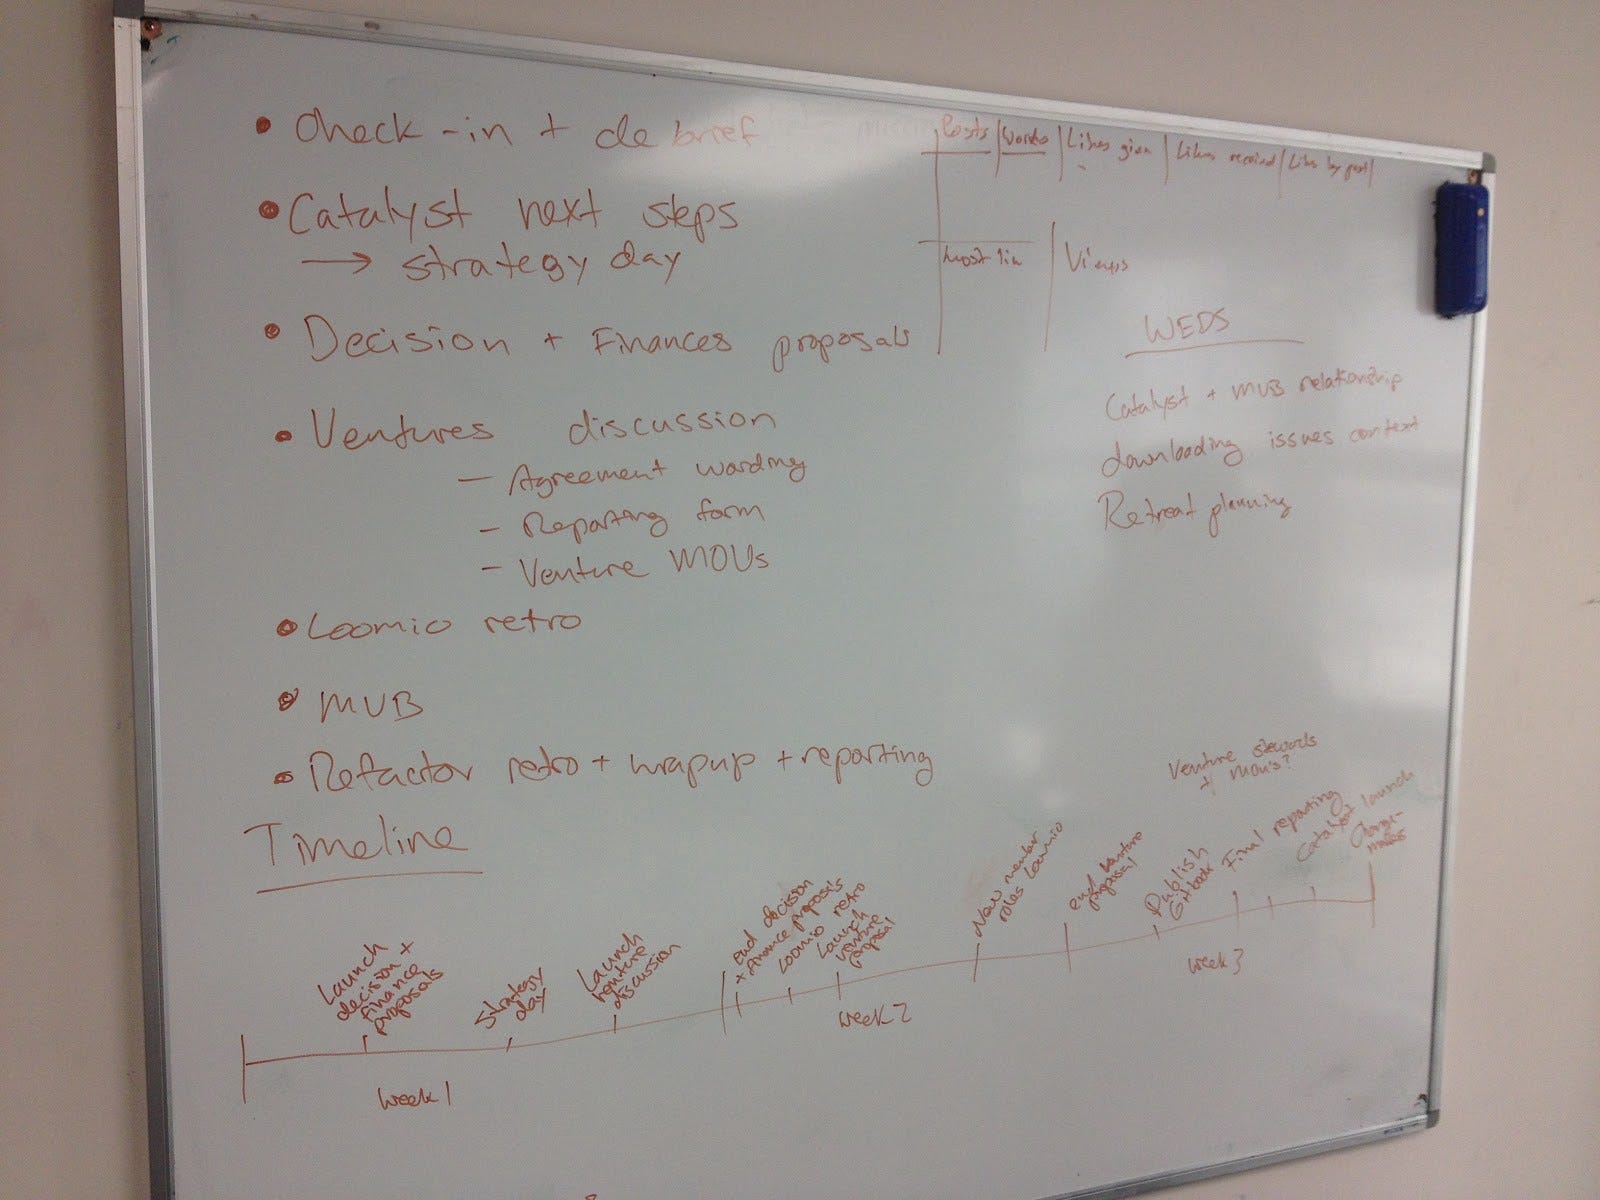 • Check-in + debrief
• Catalyst next steps
→ strategy day
• Decision + Finances proposals
• Ventures discussion
- Agreement wording
- Reporting form
- Venture MOUs
• Loomio retro
• MVB
• Refactor retro + wrapup + reporting
Posts | Words | Likes given | Likes received | Likes by post |
Views
WEDS
Catalyst + MVB relationship
downloading issues context
Retreat planning
Timeline
Launch
decision +
finance
proposals
Strategy
day
Launch
venture
discussion
end decision
+ finance proposals
Loomio retro
Launch
venture
proposal
New member
roles Loomio
end venture
proposal
Publish
Gitbook
Final reporting
Venture stewards
+ MOU's?
Catalyst launch
Change-
week 1
week 2
week 3